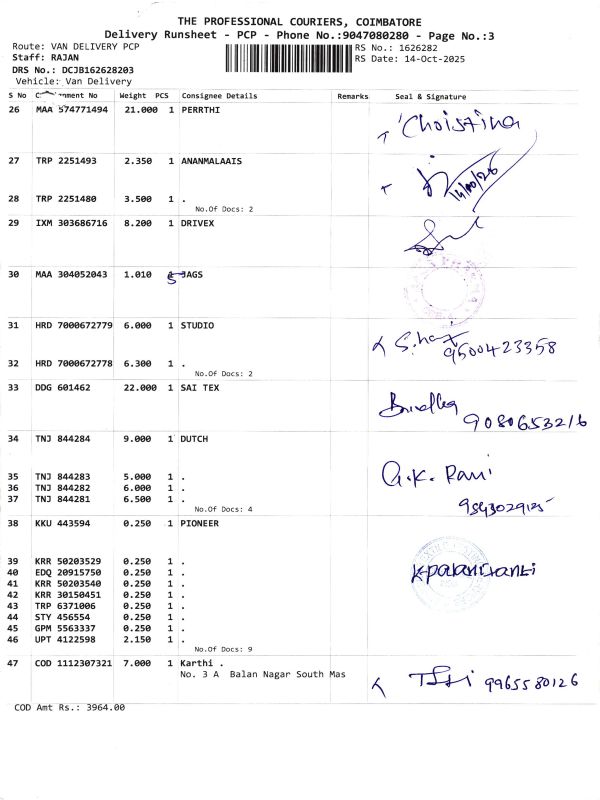 THE PROFESSIONAL COURIERS, COIMBATORE
Delivery Runsheet - PCP - Phone No.:9047080280 - Page No.:3
Route: VAN DELIVERY PCP RS No.: 1626282
Staff: RAJAN RS Date: 14-Oct-2025
DRS No.: DCJB162628203
Vehicle: Van Delivery
S No C nment No Weight PCS Consignee Details Remarks Seal & Signature
26 MAA 574771494 21.000 1 PERRTHI Christina
27 TRP 2251493 2.350 1 ANANMALAAIS
28 TRP 2251480 3.500 1 .
No.Of Docs: 2
29 IXM 303686716 8.200 1 DRIVEX
30 MAA 304052043 1.010 5 JAGS
31 HRD 7000672779 6.000 1 STUDIO
9500423358
32 HRD 7000672778 6.300 1 .
No.Of Docs: 2
33 DDG 601462 22.000 1 SAI TEX
9080653216
34 TNJ 844284 9.000 1 DUTCH
35 TNJ 844283 5.000 1 . G.K. Rani
36 TNJ 844282 6.000 1 .
37 TNJ 844281 6.500 1 .
No.Of Docs: 4
38 KKU 443594 0.250 1 PIONEER
39 KRR 50203529 0.250 1 .
40 EDQ 20915750 0.250 1 .
41 KRR 50203540 0.250 1 .
42 KRR 30150451 0.250 1 .
43 TRP 6371006 0.250 1 .
44 STY 456554 0.250 1 .
45 GPM 5563337 0.250 1 .
46 UPT 4122598 2.150 1 .
No.Of Docs: 9
47 COD 1112307321 7.000 1 Karthi .
No. 3 A Balan Nagar South Mas
9965580126
COD Amt Rs.: 3964.00